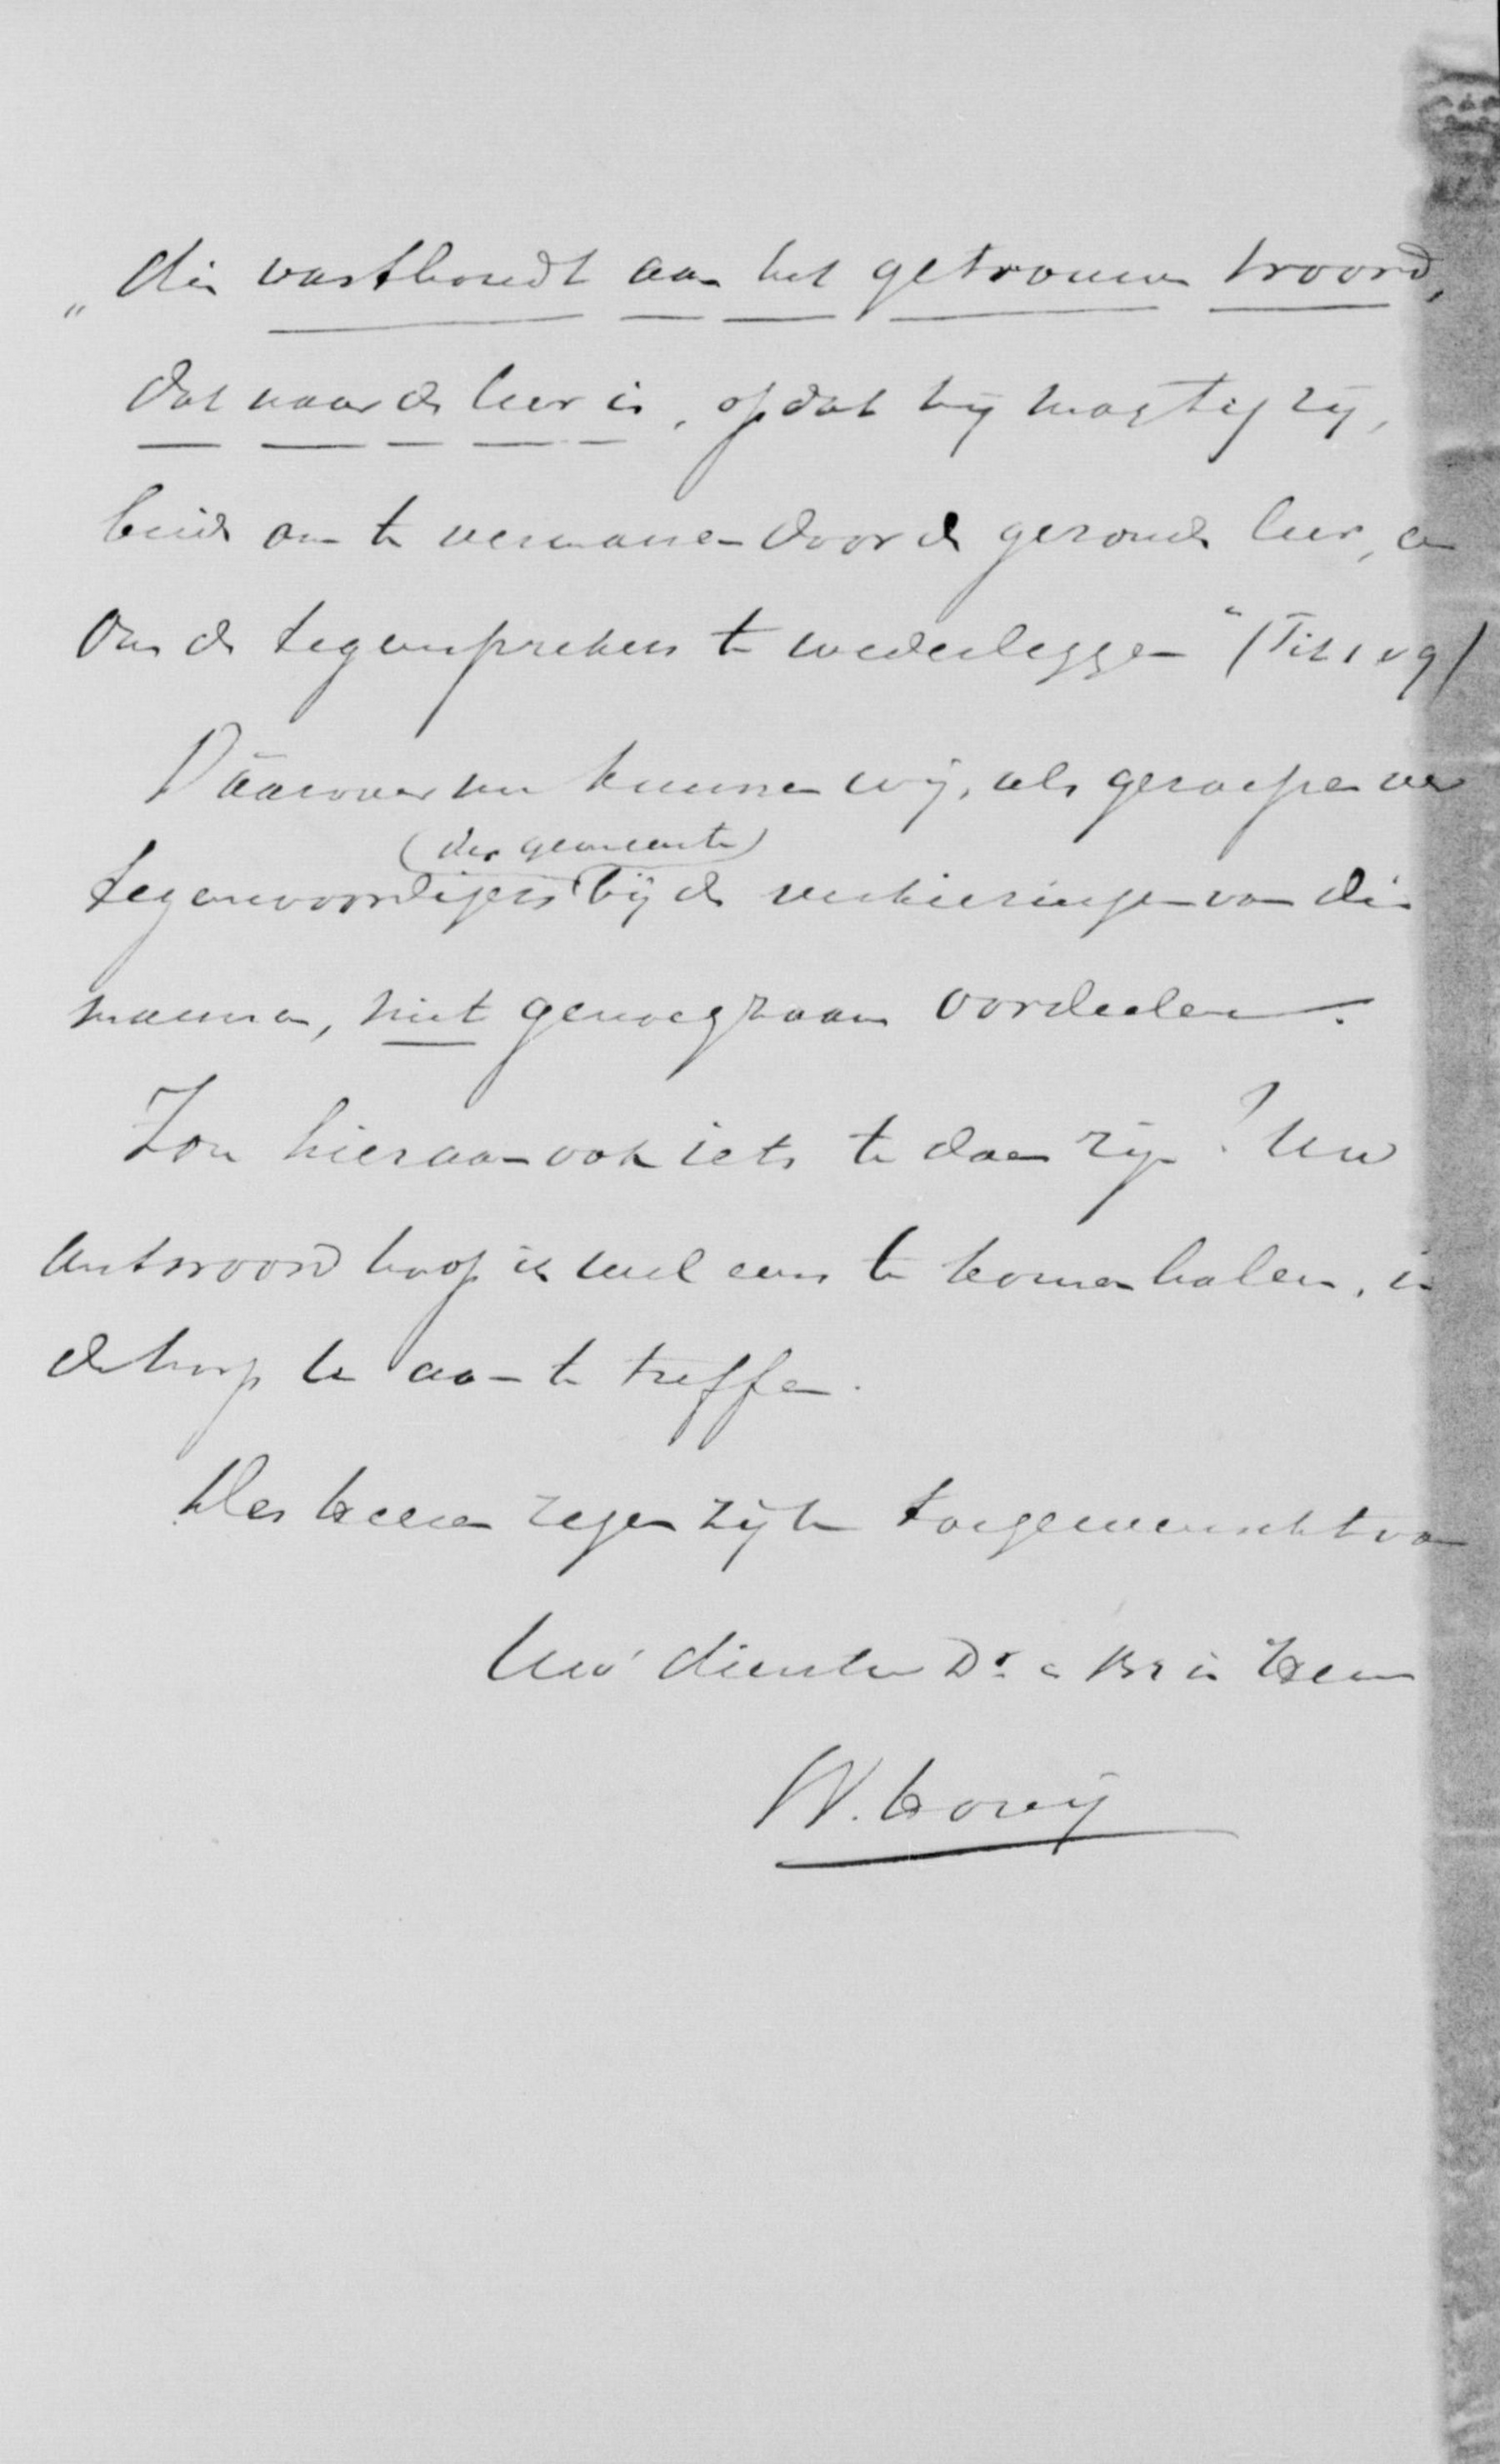 „die vasthoudt aan het getrouwe woord,
dat naar de leer is, opdat hij magtig zij,
beide om te vermanen door de gezonde leer, en
om de tegensprekers te wederleggen“ (Tit 1 v 9)
Dáárover nu kunnen wij, als geroepen ver
(der gemeente)
tegenwoordigers bij de verkiezingen van die
mannen, niet genoegzaam oordeelen.
Zou hieraan ook iets te doen zijn? Uw
antwoord hoop ik wel eens te komen halen, in
de hoop U aan te treffen.
Des Heeren zegen zij U toegewenscht van
Uw dienstw Dr. en Br in Heere
W. Hovij